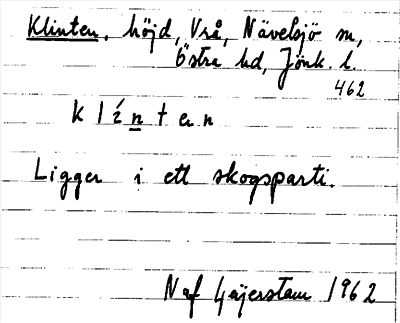 Klinten, höjd, Vrå, Nävelsjö sn,
Östra hd, Jönk. l.
462
K l í n t e n
Ligger i ett skogsparti.
N af Geijerstam 1962